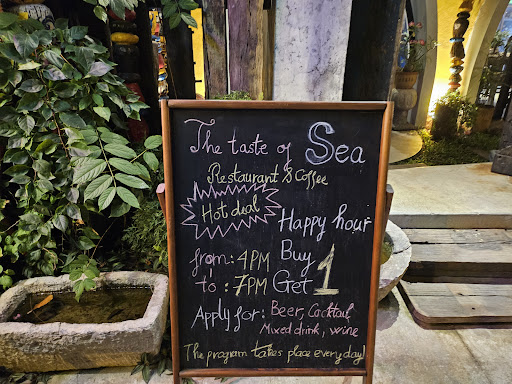 The taste of Sea
Restaurant & Coffee
Hot deal
Happy hour
from: 4PM
to: 7PM
Buy 1
Get
Apply for: Beer, Cocktail
Mixed drink, wine
The program takes place every day!